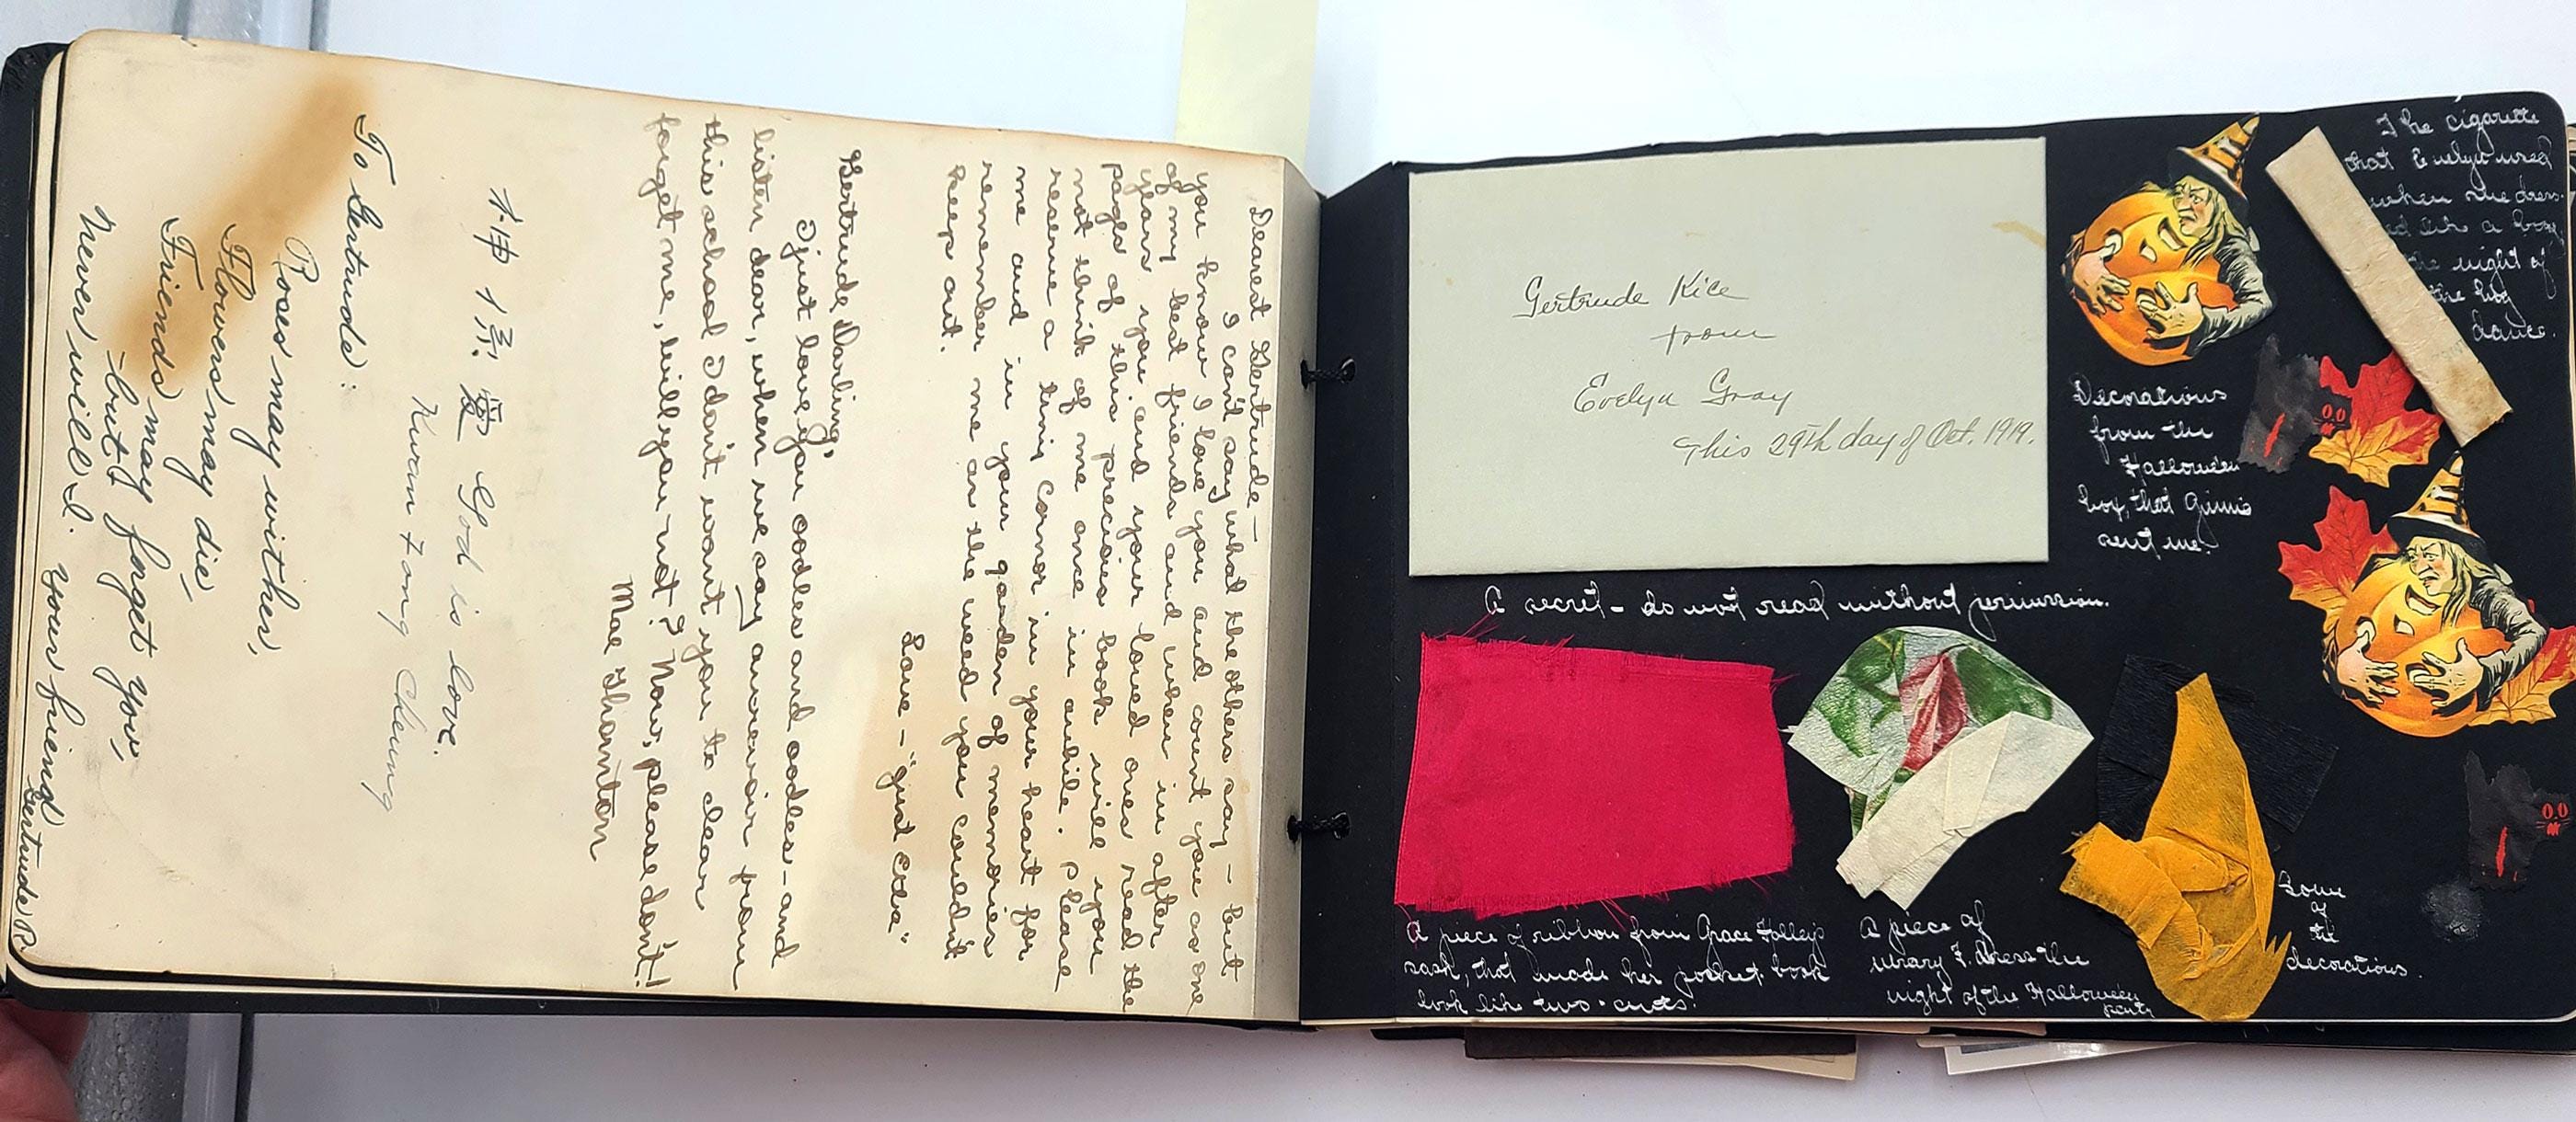 Dearest Gertrude—
I can't say what the others say — but
you know I love you and count you as one
of my best friends and when in after
years you and your loved ones read the
pages of this precious book will you
not think of me once in awhile. Please
reserve a tiny corner in your heart for
me and in your garden of memories
remember me as the weed you couldn't
keep out.
Love — "just
Gertrude Darling,
I just love you oodles and oodles — and
listen dear, when we say aurevoir from
this school I don't want you to clear
forget me, will you — not? Now, please don't!
Mae Thornton
神 愛 God is love.
Cheung
To Gertrude:
Roses may wither,
Flowers may die,
Friends may forget you,
— but I
Never will I. Your friend
Gertrude R.
Gertrude Kice
from
Evelyn Gray
This 29th day of Oct. 1919.
A secret — do not read without permission.
The cigarette
that Evelyn used
when she dress-
ed like a boy,
the night of
the
dance.
Decorations
from the
Halloween
box, that Ginnie
sent me.
A piece of ribbon from Grace Holley's
sash, that made her pocket book
look like two-cents.
A piece of
my dress the
night of the Halloween
party
Some
of
the
decorations.